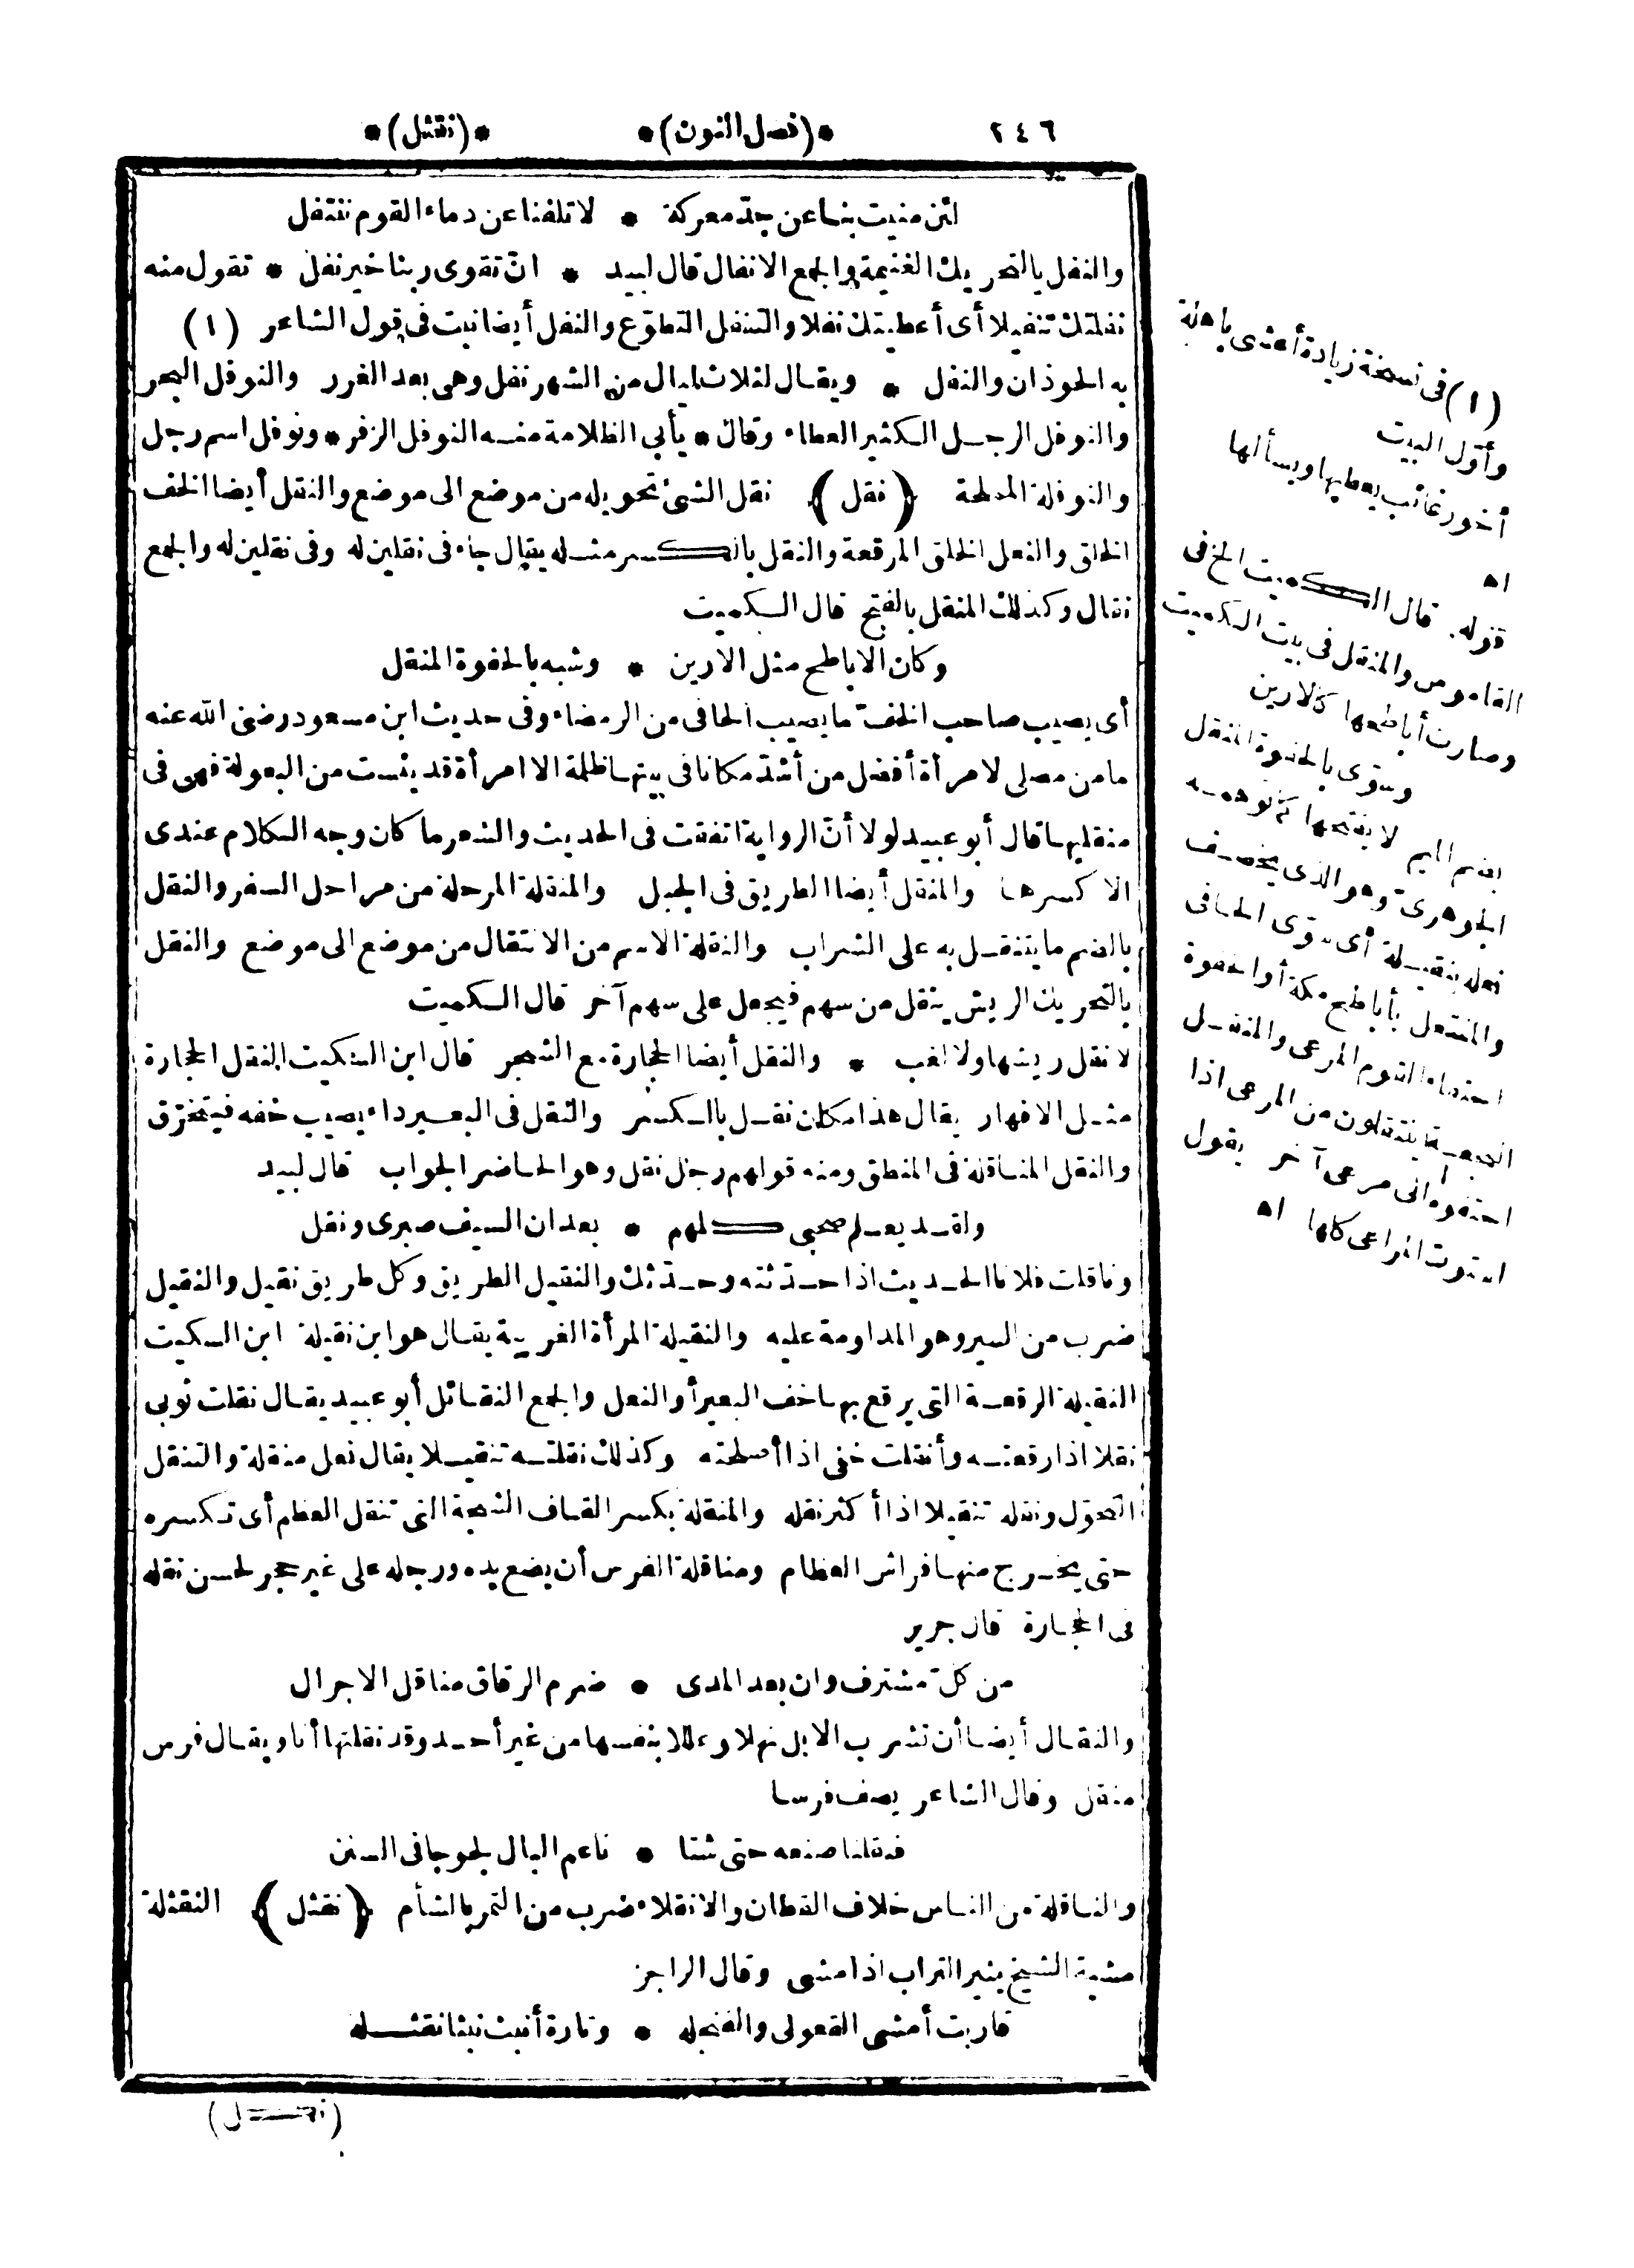 ٢٤٦ *(فصل النون)* *(نقثل)*
لئن منيت بنا عن جدّ معركة * لا تلفنا عن دماء القوم ننتفل
والنفل بالتحريك الغنيمة والجمع الانفال قال لبيد * انّ تقوى ربنا خير نفل * تقول منه
نفلتك تنفيلا أى أعطيتك نفلا والتنفل التطوّع والنفل أيضا نبت فى قول الشاعر (١)
به الحوذان والنفل * ويقال لثلاث ليال من الشهر نفل وهى بعد الغرر والنوفل البحر
والنوفل الرجل الكثير العطاء وقال * يأبى الظلامة منه النوفل الزفر * ونوفل اسم رجل
والنوفلة المملحة (نقل) نقل الشئ تحويله من موضع الى موضع والنقل أيضا الخف
الخلق والنعل الخلق المرقعة والنقل بالكسر مثله يقال جاء فى نقلين له وفى نقلين له والجمع
نقال وكذلك المنقل بالفتح قال الكميت
وكان الاباطح مثل الارين * وشبه بالحفوة المنقل
أى يصيب صاحب الخفّ ما يصيب الحافى من الرمضاء وفى حديث ابن مسعود رضى الله عنه
ما من مصلى لامرأة أفضل من أشدّ مكانا فى بيتها ظلمة الا امرأة قد يئست من البعولة فهى فى
منقليها قال أبو عبيد لولا أنّ الرواية اتفقت فى الحديث والشعر ما كان وجه الكلام عندى
الا كسرها والمنقل أيضا الطريق فى الجبل والمنقلة المرحلة من مراحل السفر والنقل
بالضم ما يتنقل به على الشراب والنقلة الاسم من الانتقال من موضع الى موضع والنقل
بالتحريك الريش ينقل من سهم فيجعل على سهم آخر قال الكميت
لا نقل ريشها ولا لغب * والنقل أيضا الحجارة مع الشجر قال ابن السكيت النقل الحجارة
مثل الافهار يقال هذا مكان نقل بالكسر والنقل فى البعير داء يصيب خفه فيتخرّق
والنقل المناقلة فى المنطق ومنه قولهم رجل نقل وهو الحاضر الجواب قال لبيد
ولقد يعلم صحبى كلهم * بعدان السيف صبرى ونقل
وناقلت فلانا الحديث اذا حدّثته وحدّثك والنقيل الطريق وكل طريق نقيل والنقيل
ضرب من السير وهو المداومة عليه والنقيلة المرأة الغريبة يقال هو ابن نقيلة ابن السكيت
النقيلة الرقعة التى يرقع بها خف البعير أو النعل والجمع النقائل أبو عبيد يقال نقلت ثوبى
نقلا اذا رقعته وأنقلت خفى اذا أصلحته وكذلك نقلته تنقيلا يقال نعل منقلة والتنقل
التحوّل ونقله تنقيلا اذا أكثر نقله والمنقلة بكسر القاف الشجة التى تنقل العظم أى تكسره
حتى يخرج منها فراش العظام ومناقلة الفرس أن يضع يده ورجله على غير حجر لحسن نقله
فى الحجارة قال جرير
من كلّ مشترف وان بعد المدى * ضرم الرقاق مناقل الاجرال
والنقال أيضا أن تشرب الابل نهلا وعللا بنفسها من غير أحد وقد نقلتها أنا ويقال فرس
منقل وقال الشاعر يصف فرسا
فنقلنا صنعه حتى شتا * ناعم البال لجوجا فى السنن
والناقلة من الناس خلاف القطان والانقلاء ضرب من التمر بالشأم (نقثل) النقثلة
مشية الشيخ يثير التراب اذا مشى وقال الراجز
قاربت أمشى القعولى والفنجله * وتارة أنبث نبثا نقثله
(١) فى نسخة زيادة أعشى باهلة
وأوّل البيت
أخو رغائب يعطيها ويسألها
اه
قوله قال الكميت الخ فى
القاموس والمنقل فى بيت الكميت
وصارت أباطحها كالارين
وسوّى بالحفوة المنقل
بضم الميم لا بفتحها كما توهمه
الجوهرىّ وهو الذى يخصف
نعله بنقيلة أى سوّى الحافى
والمنتعل بأباطح مكة أو الحفوة
احتفاء القوم المرعى والمنقل
النجعة ينتقلون من المرعى اذا
احتفوه الى مرعى آخر يقول
استوت المراعى كلها اه